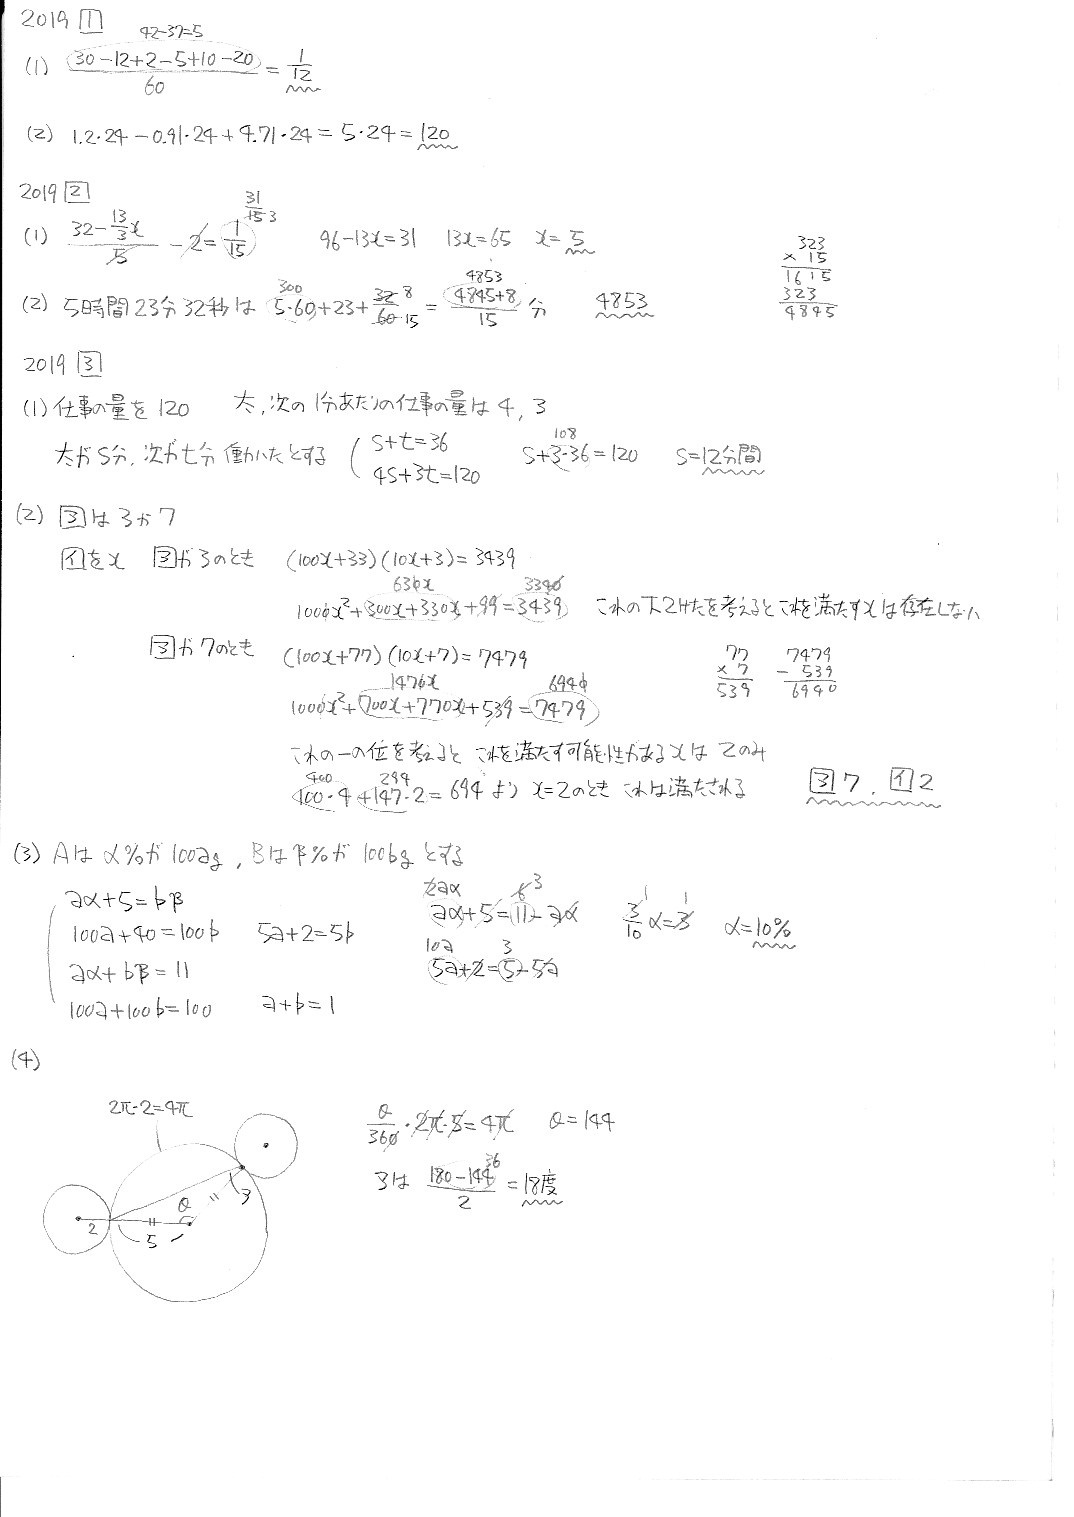 2019 1
42-37=5
(1) (30-12+2-5+10-20)/60 = 1/12
(2) 1.2・24-0.91・24+4.71・24=5・24=120
2019 2
(1) (32-13/3x)/5 - 2 = 1/15 31/15 3 96-13x=31 13x=65 x=5
323
×15
1615
323
4845
(2) 5時間23分32秒は 5・60+23+32/60 = (4845+8)/15 分 4853
300 8 15 4853
2019 3
(1) 仕事の量を120 太,次の1分あたりの仕事の量は4,3
太がS分,次がt分働いたとする S+t=36 S+3・36=120 S=12分間
108
4S+3t=120
(2) ヨは3か7
イをx ヨが3のとき (100x+33)(10x+3)=3439
630x 3340
1000x²+300x+330x+99=3439 これの下2けたを考えるとこれを満たすxは存在しない
ヨが7のとき (100x+77)(10x+7)=7479
77
×7
539
7479
-539
6940
1470x 6940
1000x²+700x+770x+539=7479
これの一の位を考えると これを満たす可能性があるxは 2のみ
400 294
100・4+147・2=694より x=2のとき これは満たされる ヨ7,イ2
(3) Aはα%が100ag,Bはβ%が100bgとする
aα+5=bβ
100a+40=100b 5a+2=5b
aα+bβ=11
100a+100b=100 a+b=1
2aα 6 3
aα+5=11-aα 3/10α=3 α=10%
1 1
10a 3
5a+2=5-5a
(4)
2π・2=4π
θ/360・2π・5=4π θ=144
ヨは (180-144)/2 = 18度
36
θ
ヨ
2
5